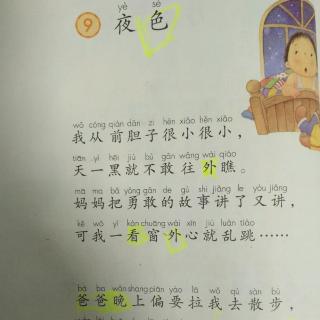 yè sè
9 夜色
wǒ cóng qián dǎn zi hěn xiǎo hěn xiǎo
我从前胆子很小很小，
tiān yì hēi jiù bù gǎn wǎng wài qiáo
天一黑就不敢往外瞧。
mā ma bǎ yǒng gǎn de gù shi jiǎng le yòu jiǎng
妈妈把勇敢的故事讲了又讲，
kě wǒ yí kàn chuāng wài xīn jiù luàn tiào
可我一看窗外心就乱跳……
bà ba wǎn shang piān yào lā wǒ qù sàn bù
爸爸晚上偏要拉我去散步，